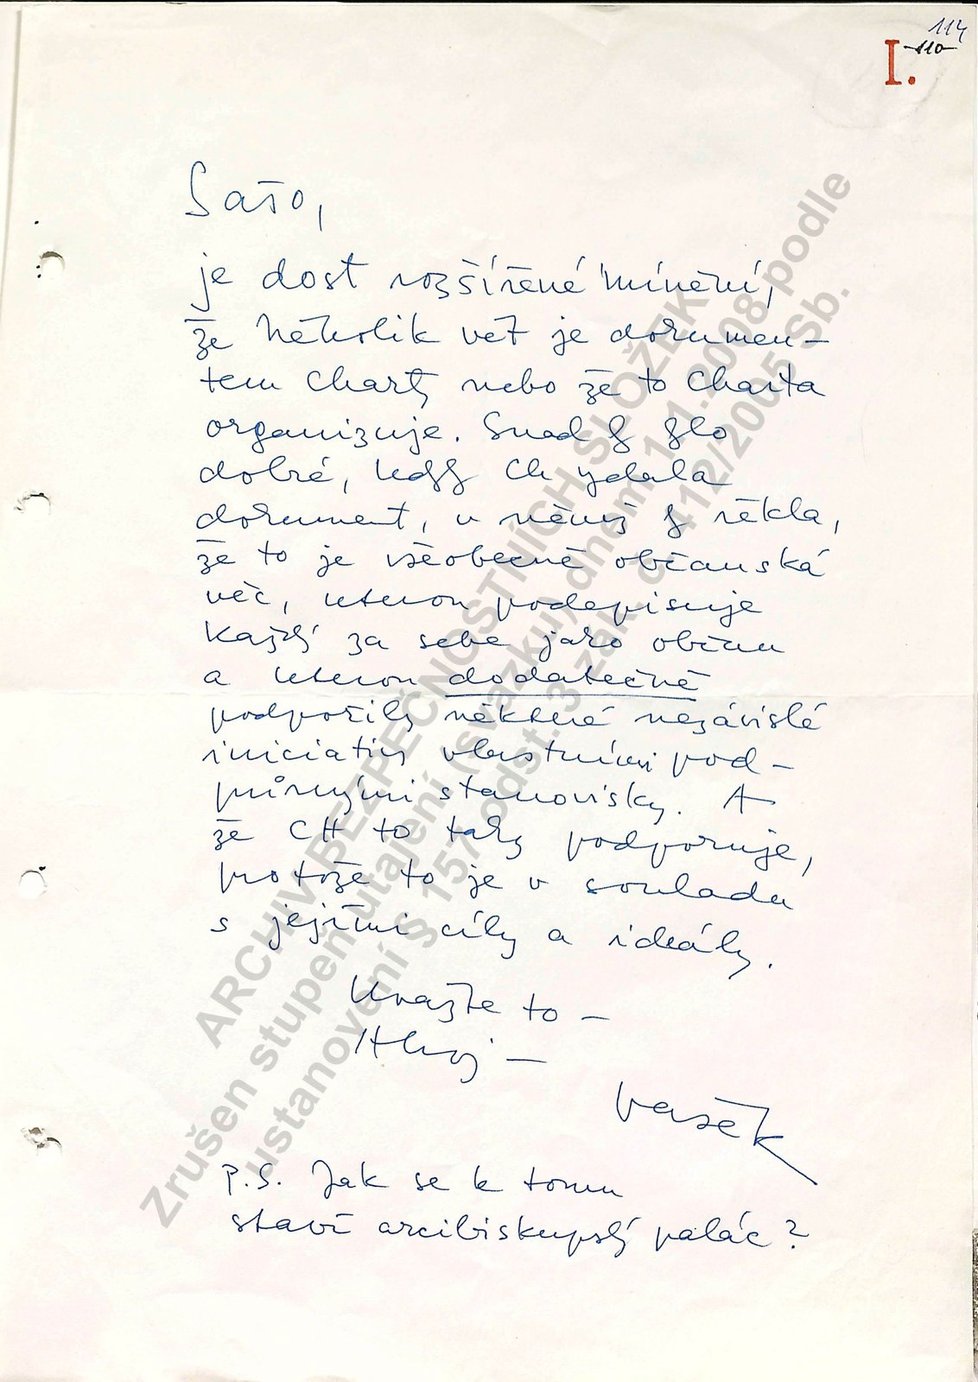 114
110
I.
Sašo,
je dost rozšířené mínění,
že Několik vět je dokumen-
tem Charty nebo že to Charta
organizuje. Snad by bylo
dobré, kdyby Ch vydala
dokument, v němž by řekla,
že to je všeobecně občanská
věc, kterou podepisuje
každý za sebe jako občan
a kterou dodatečně
podpořily některé nezávislé
iniciativy vlastními pod-
půrnými stanovisky. A
že CH to taky podporuje,
protože to je v souladu
s jejími cíly a ideály.
Uvažte to –
Ahoj –
Vašek
P.S. Jak se k tomu
staví arcibiskupský palác?
ARCHIV BEZPEČNOSTNÍCH SLOŽEK
Zrušen stupeň utajení (svazku) dnem 1.1.2008 podle
ustanovení § 157 odst. 3 zák. č. 412/2005 Sb.